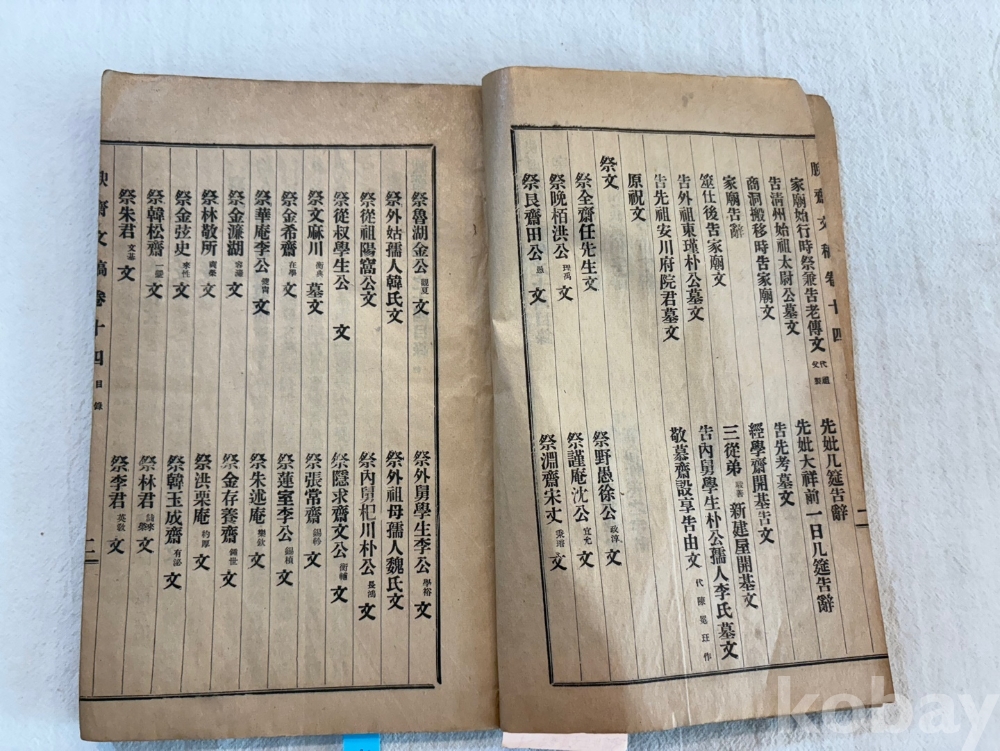 齋文稿卷十四
家廟始行時祭兼告老傳文 先妣几筵告辭
告清州始祖太尉公墓文 先妣大祥前一日几筵告辭
商洞搬移時告家廟文 告先考墓文
家廟告辭 經學齋開基告文
筮仕後告家廟文 三從弟 新建屋開基文
告外祖東瑾朴公墓文 告內舅學生朴公孺人李氏墓文
告先祖安川府院君墓文 敬慕齋設享告由文
原祝文
祭文
祭全齋任先生文 祭野愚徐公 政淳 文
祭晩栢洪公 文 祭謹庵沈公 宜允 文
祭艮齋田公 愚 文 祭淵齋宋丈 秉璿 文
二
祭魯湖金公 觀夏 文 祭外舅學生李公 學裕 文
祭外姑孺人韓氏文 祭外祖母孺人魏氏文
祭從祖陽窩公文 祭內舅杞川朴公 長鴻 文
祭從叔學生公 文 祭隱求齋文公 衡輔 文
祭文麻川 墓文 祭張常齋 錫矜 文
祭金希齋 在學 文 祭蓮室李公 錫楨 文
祭華庵李公 文 祭朱述庵 文
祭金濂湖 容鴻 文 祭金存養齋 錫世 文
祭林敬所 商榮 文 祭洪栗庵 約厚 文
祭金弦史 來性 文 祭韓玉成齋 有泌 文
祭韓松齋 文 祭林君 文
祭朱君 文基 文 祭李君 英敎 文
齋文稿卷十四 目錄 二
kobay